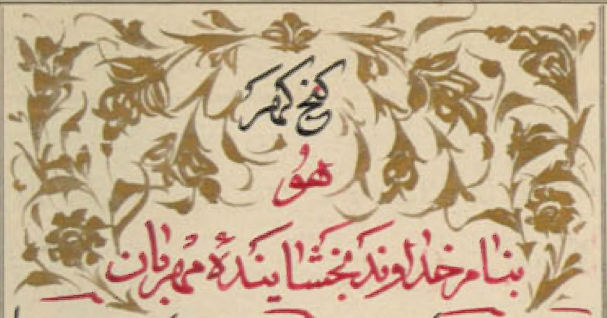 گنج گهر
هُو
بنام خداوند بخشایندهٔ مهربان